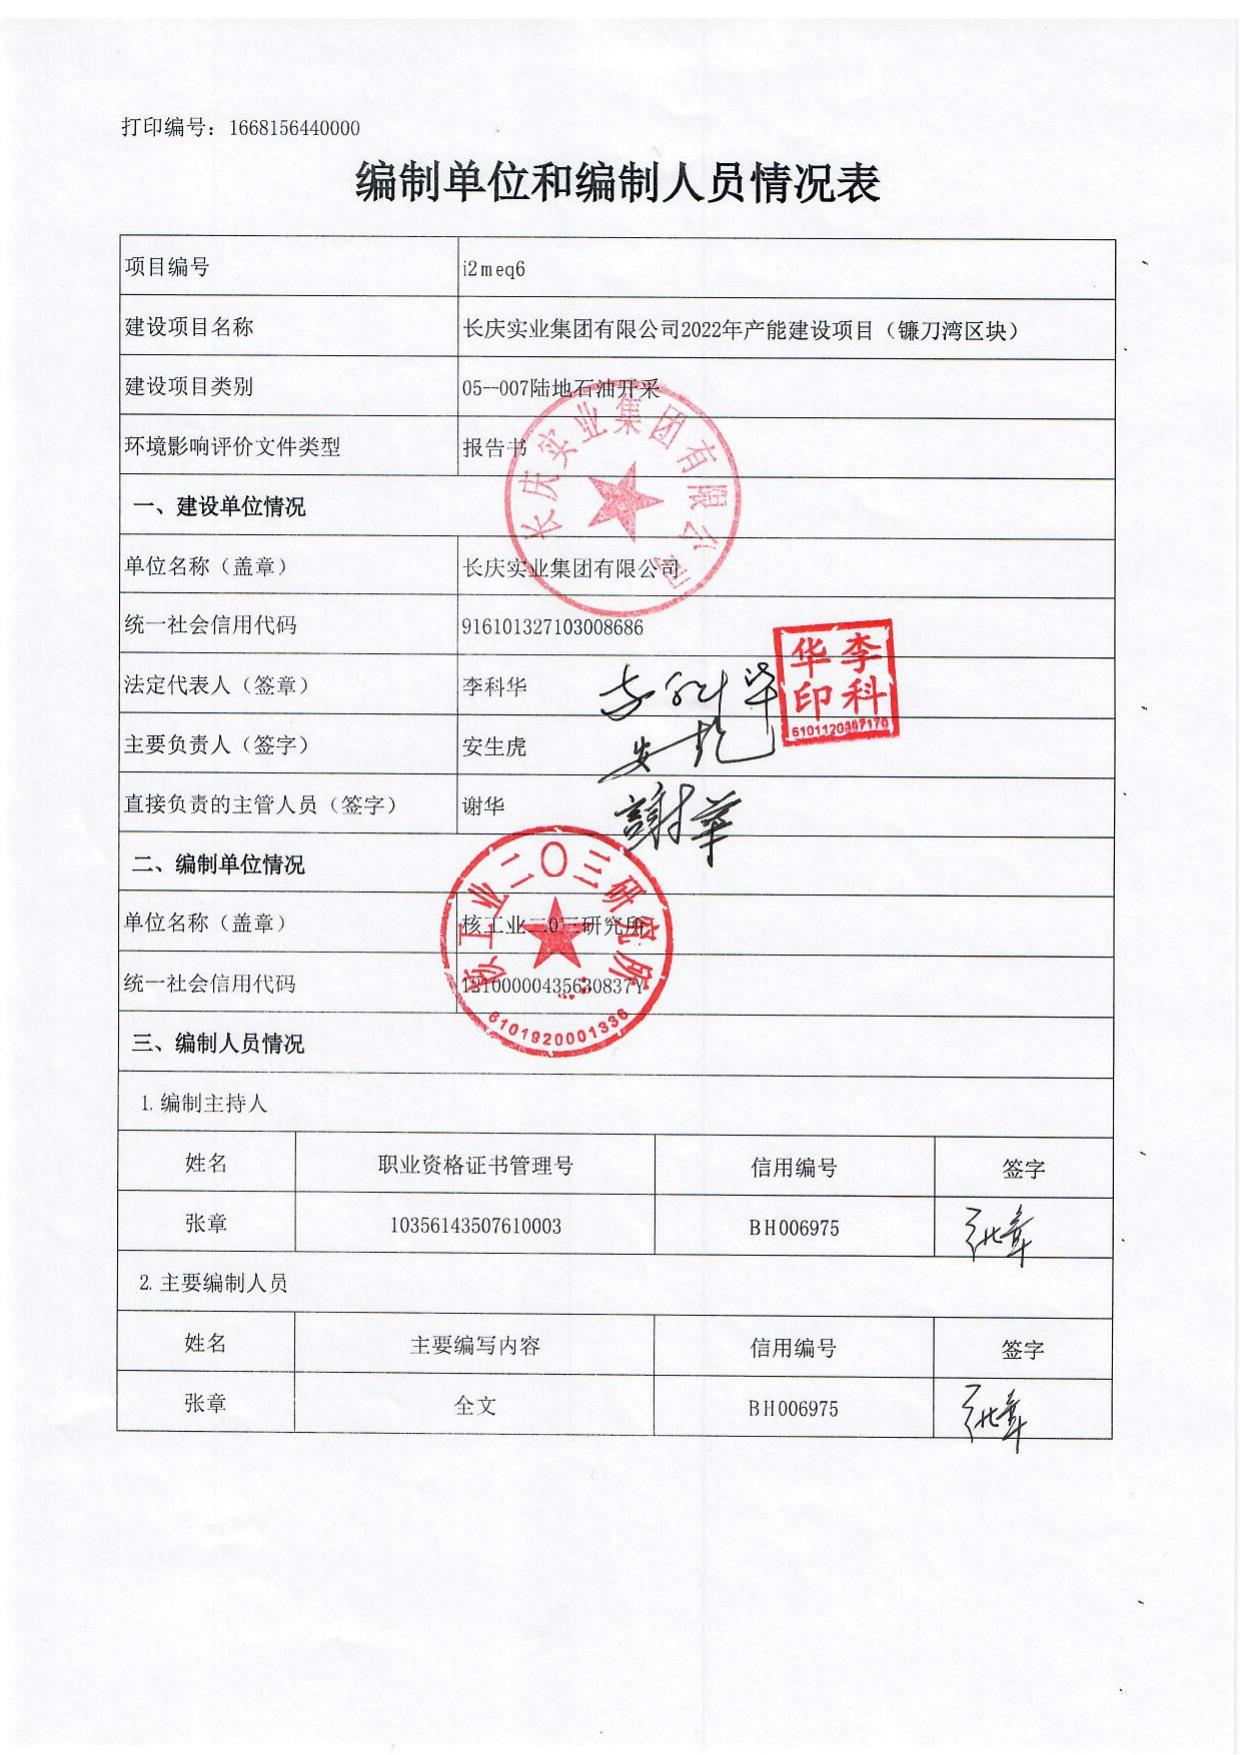 打印编号：1668156440000
编制单位和编制人员情况表
项目编号 i2meq6
建设项目名称 长庆实业集团有限公司2022年产能建设项目（镰刀湾区块）
建设项目类别 05--007陆地石油开采
环境影响评价文件类型 报告书
一、建设单位情况
长庆实业集团有限公司
单位名称（盖章） 长庆实业集团有限公司
统一社会信用代码 916101327103008686
法定代表人（签章） 李科华 李科华
李科华印
主要负责人（签字） 安生虎
直接负责的主管人员（签字） 谢华 謝華
二、编制单位情况
核工业二〇三研究所
单位名称（盖章） 核工业二0三研究所
统一社会信用代码 12100000435630837Y
6101920001336
三、编制人员情况
1.编制主持人
姓名 职业资格证书管理号 信用编号 签字
张章 10356143507610003 BH006975 张章
2.主要编制人员
姓名 主要编写内容 信用编号 签字
张章 全文 BH006975 张章